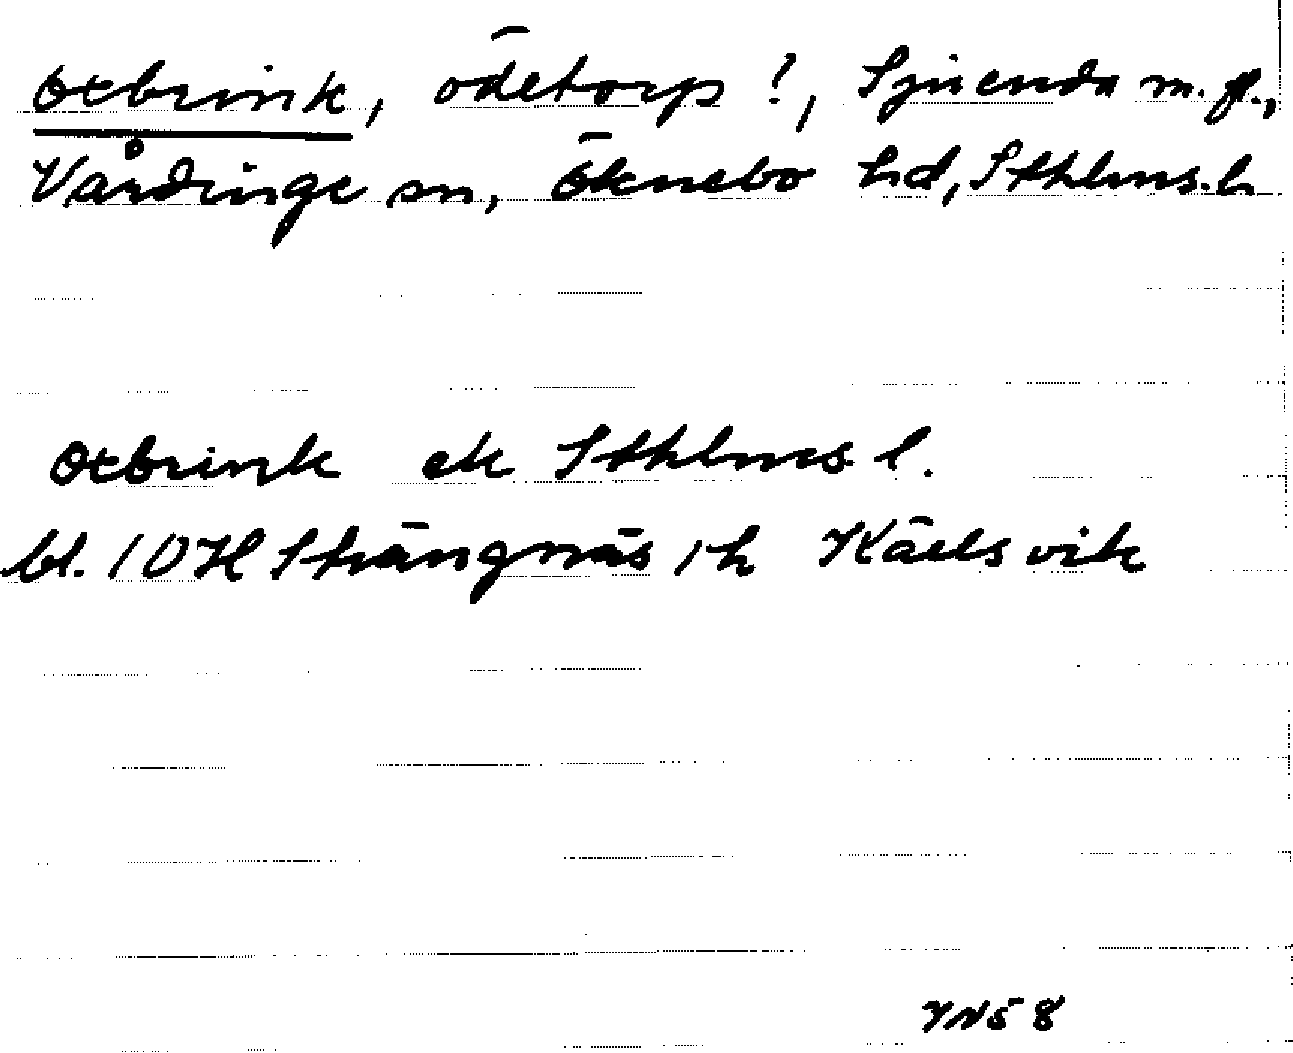 Oxbrink, ödetorp?, Sjuenda m.fl.,
Vårdinge sn, Öknebo hd, Sthlms.l.
Oxbrink ek Sthlms l.
bl. 10H Strängnäs 1h Kärlsvik
YN58